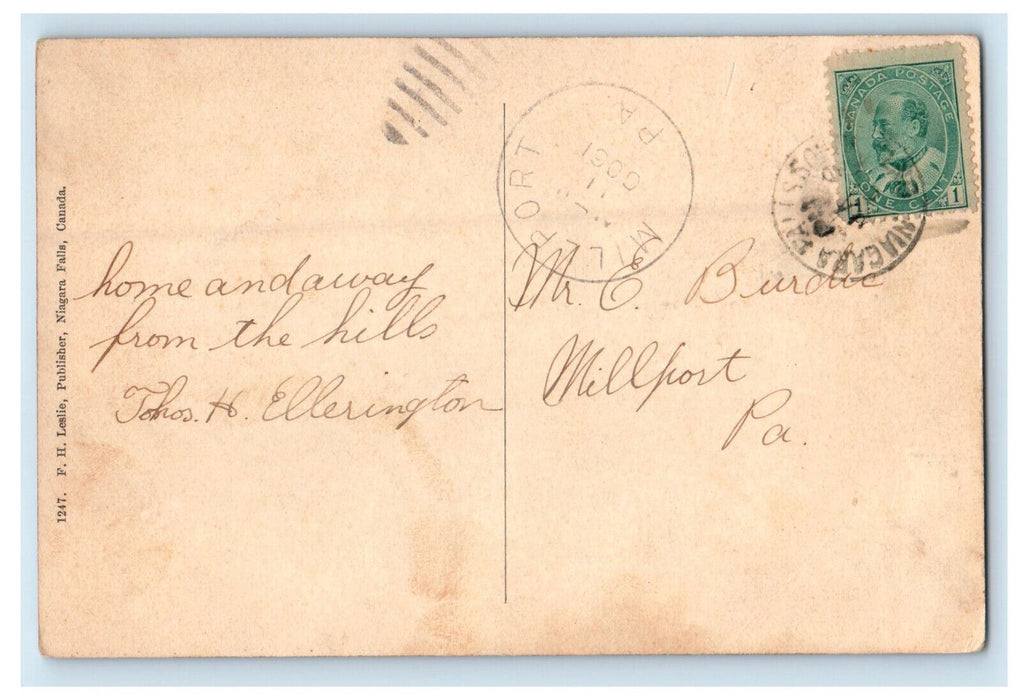 1247. F. H. Leslie, Publisher, Niagara Falls, Canada.
home and away
from the hills
Thos. H. Ellerington
MILLPORT
PA.
CANADA POSTAGE
ONE CENT
1 1
NIAGARA FALLS SOUTH
Mr. E. Burdic
Millport
Pa.